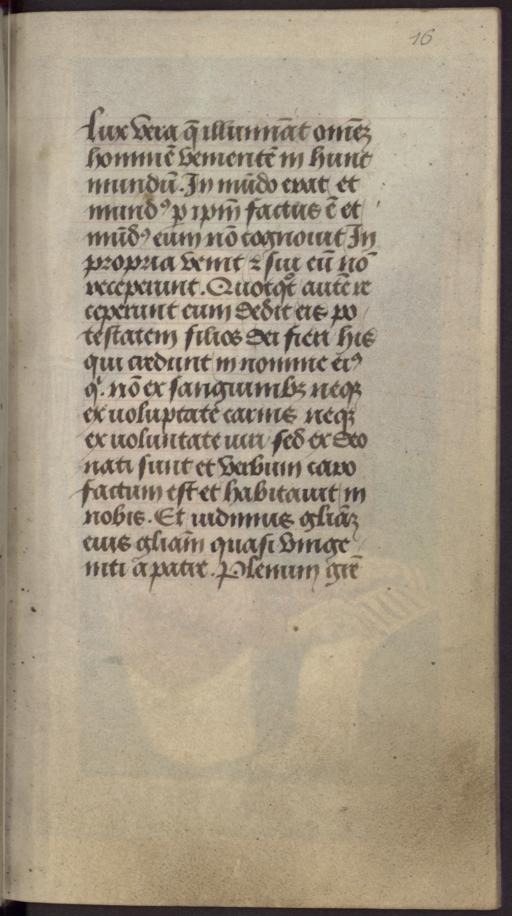 16
Lux vera q̄ illumināt omēꝫ
hominē venientē in hunc
mundū. In mūdo erat et
mundꝰ ꝑ ip̄m factus ē et
mūdꝰ eum nō cognouit In
propria venit ⁊ sui eū nō
receperunt. Quotqͦt autē re
ceperunt eum dedit eis po
testatem filios dei fieri his
qui credunt in nomine eiꝰ
qͥ. nō ex sanguinibꝫ neqꝫ
ex uoluptate carnis neqꝫ
ex uoluntate uiri sed ex deo
nati sunt et verbum caro
factum est et habitauit in
nobis. Et uidimus gliāꝫ
eius gliam̄ quasi vnige
niti a patre. Plenum gr̄e